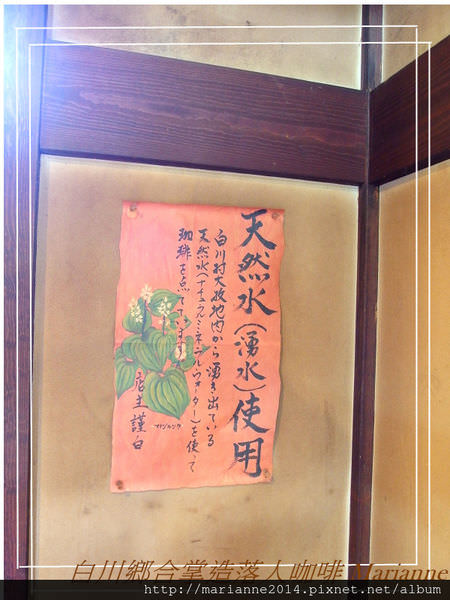 天然水(湧水)使用
白川村大牧地内から湧き出ている
天然水(ナチュラルミネラルウォーター)を使って
珈琲を点てています。
店主謹白
マイヅルソウ
白川鄉合掌造落人咖啡 Marianne
http://marianne2014.pixnet.net/album